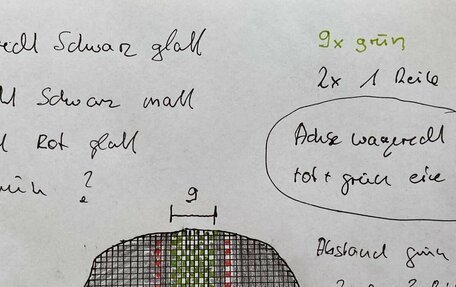 Schwarz glatt
Schwarz matt
Rot glatt
?
9
9x grün
2x 1 Reihe
Achse waagerecht
rot + grün eine
Abstand grün